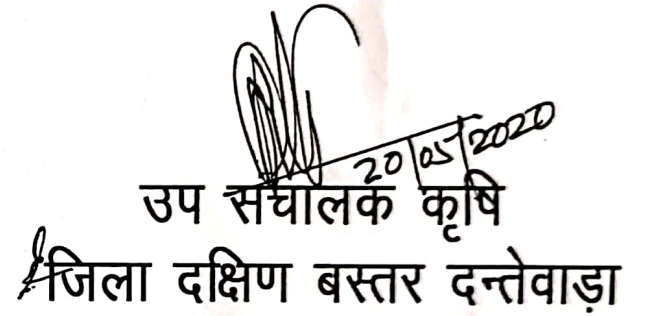 20/05/2020
उप संचालक कृषि
जिला दक्षिण बस्तर दन्तेवाड़ा